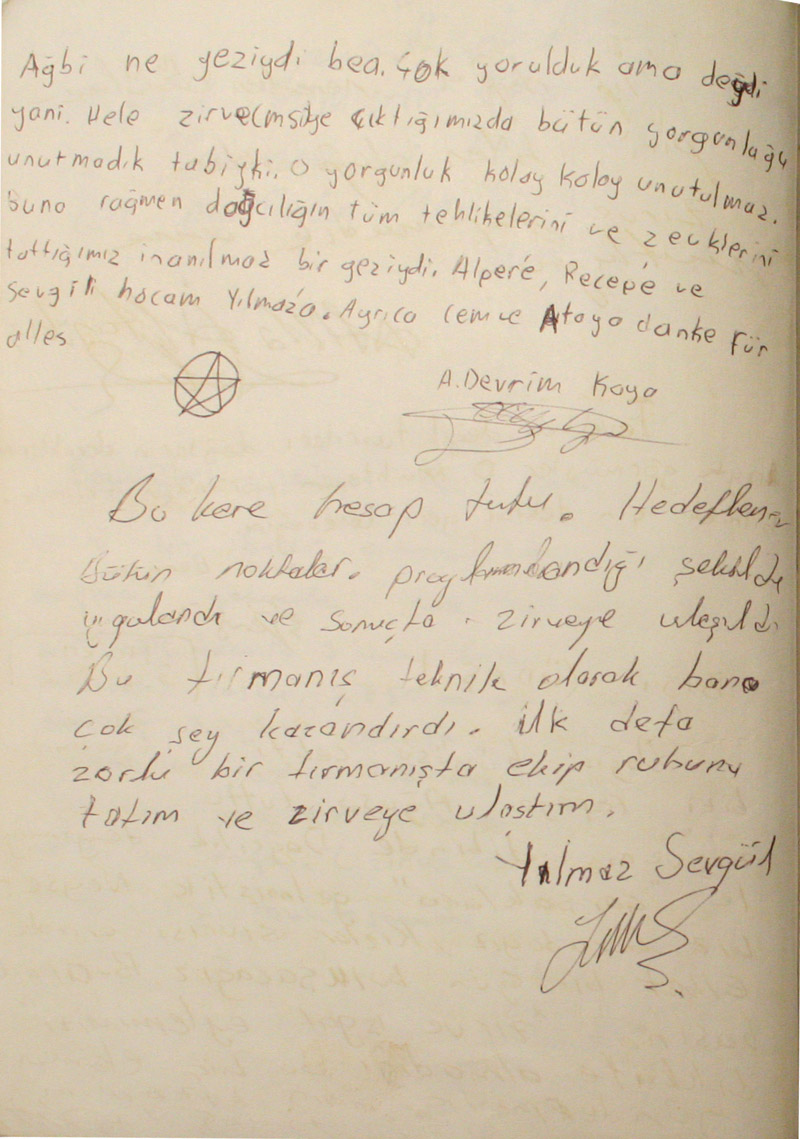 Ağbi ne geziydi bea. Çok yorulduk ama değdi
yani. Hele zirvemsiye çıktığımızda bütün yorgunluğu
unutmadık tabiyki. O yorgunluk kolay kolay unutulmaz.
buna rağmen dağcılığın tüm tehlikelerini ve zevklerini
tattığımız inanılmaz bir geziydi. Alper'e, Recep'e ve
sevgili hocam Yılmaz'a. Ayrıca Cem ve Ataya danke für
alles
A. Devrim Kaya
Bu kere hesap tuttu. Hedeflenen
Bütün noktalar. programlandığı şekilde
uygulandı ve sonuçta. zirveye ulaşıldı
Bu tırmanış teknik olarak bana
çok şey kazandırdı. ilk defa
zorlu bir tırmanışta ekip ruhunu
tatım ve zirveye ulaştım.
Yılmaz Sevgül